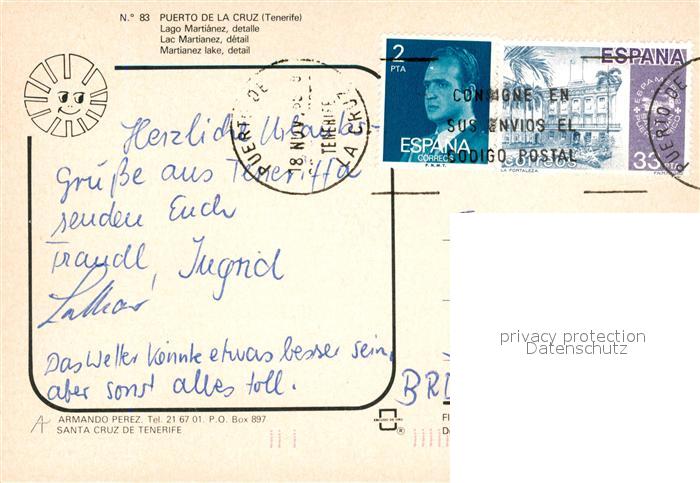 N.° 83 PUERTO DE LA CRUZ (Tenerife)
Lago Martiánez, detalle
Lac Martianez, détail
Martianez lake, detail
2
PTA
ESPAÑA
CORREOS
F.N.M.T.
ESPAÑA
correos
33
LA FORTALEZA
PUERTO DE
18 NOV
TENERIFE
LA CRUZ
CONSIGNE EN
SUS ENVIOS EL
CODIGO POSTAL
PUERTO DE
Herzliche Urlaubs-
grüße aus Teneriffa
senden Euch
Traudl, Ingrid
Das Wetter könnte etwas besser sein,
aber sonst alles toll.
BRD
privacy protection
Datenschutz
ARMANDO PEREZ. Tel. 21 67 01. P.O. Box 897
SANTA CRUZ DE TENERIFE